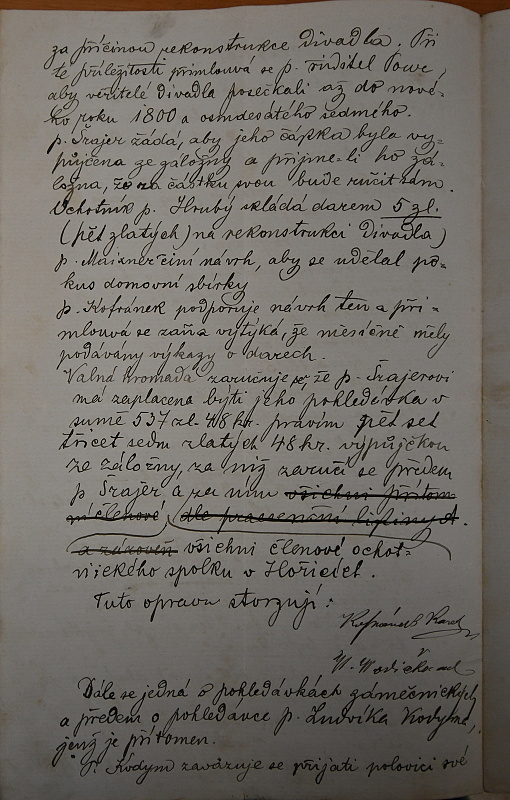 za příčinou rekonstrukce divadla. Při
té příležitosti přimlouvá se p. ředitel
aby věřitelé divadla posečkali až do nové-
ho roku 1800 a osmdesátého sedmého.
p. Šrajer žádá, aby jeho částka byla vy-
půjčena ze záložny a přijme-li ho zá-
ložna, že za částku svou bude ručit sám.
Ochotník p. Hrubý skládá darem 5 zl.
(pět zlatých) na rekonstrukci divadla)
p. Maixner činí návrh, aby se udělal po-
kus domovní sbírky
p. Kofránek podporuje návrh ten a při-
mlouvá se zaň a vytýká, že měsíčně měly
podávány výkazy o darech.
Valná hromada zaručuje se, že p. Šrajerovi
má zaplacena býti jeho pohledávka v
sumě 537 zl. 48 kr. pravím pět set
třicet sedm zlatých 48 kr. výpůjčkou
ze záložny, za niž zaručí se předem
p Šrajer, a za ním všichni přítom-
ní členové, dle praesenční listiny A.
a zároveň všichni členové ochot-
nického spolku v Hořicích.
Tuto opravu stvrzují:
Kofránek Karel
Dále se jedná o pohledávkách zámečnických
a předem o pohledavce p. Ludvíka Kodyma,
jenž je přítomen.
P. Kodym zavazuje se přijati polovici své